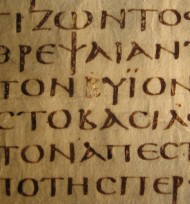 ΤΙΖΩΝΤΟΣ
ΘΡΕΨΑΙΑΝΤ
ΤΟΝΕΥΪΟΝ
ΣΤΟΒΑΣΙΛ
ΤΟΝΑΠΕΣΤ
ΠΟΤΗΣΠΕΡ